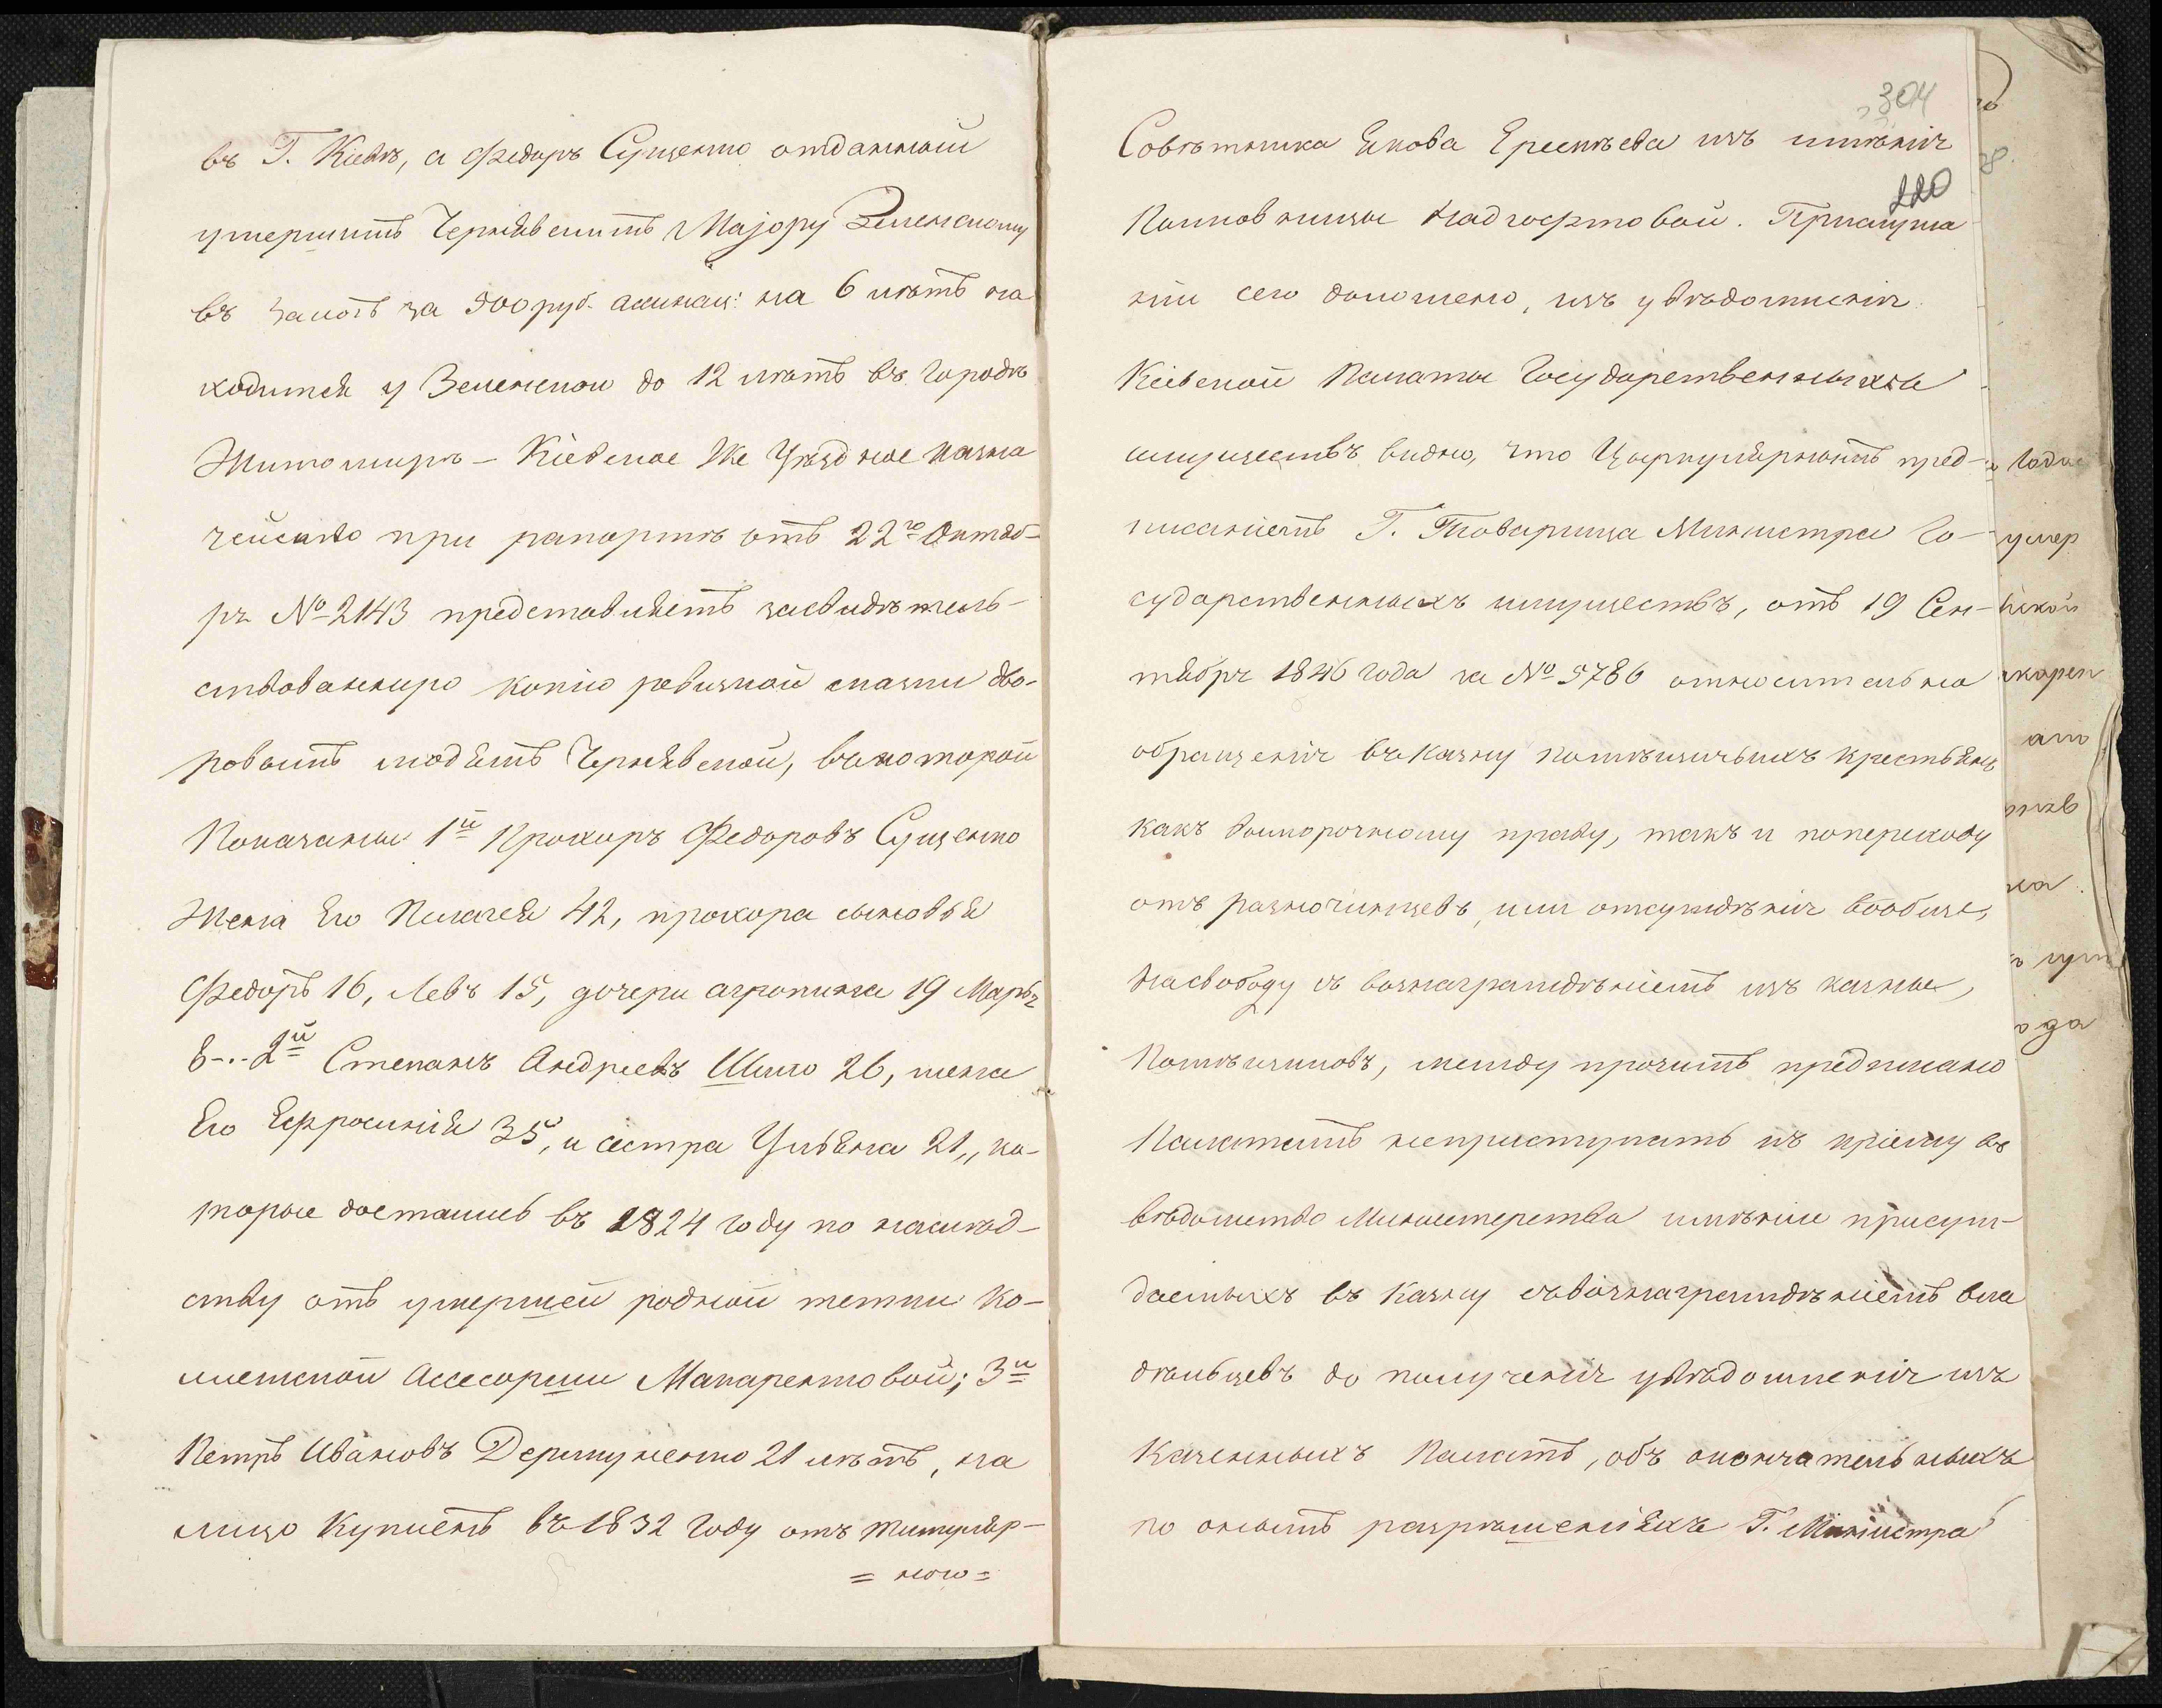 въ Г. Кіевѣ, а Федоръ Сущенко отданный
умершимъ Чернявскимъ Маіору Зеленскому
въ залогъ за 500 руб. ассигнац: на 6 лѣтъ на
ходится у Зеленского до 12 лѣтъ въ городѣ
Житомирѣ – Кіевское же Уѣздное казна
чейство при рапортѣ отъ 22го Октяб-
ря № 2143 представляетъ засвидѣтель-
ствованную копію ревизкой сказки дво-
ровымъ людямъ Чернявской, въ которой
Показаны 1й Прохоръ Федоровъ Сущенко
жена Его Пелагея 42, прохора сыновья
Федоръ 16, Левъ 15, дочери агропина 19 Марья
8-.. 2й Степанъ Андреевъ Шило 26, жена
Его Ефросинія 35, и сестра Ульяна 21,, ко-
торые достались въ 1824 году по наслед-
ству отъ умершей родной тетки Ко-
лежской Ассесорши Макаренковой; 3й
Петръ Ивановъ Держуненко 21 лѣтъ, на
лицо Купленъ въ 1832 году отъ титуляр-
= ного =
304
220
Совѣтника Якова Ерескѣева изъ имѣнія
Полковницы Надгофтовой. Прислуша
ніи сего доложено, изъ увѣдомленія
Кіевской Палаты Государственныхъ
имуществъ видно, что Циркулярнымъ пред-
писаніемъ Г. Товарища Министра Го-
сударственныхъ имуществъ, отъ 19 Сен-
тября 1846 года за № 5786 относительно
обращенія въ казну помѣщичьихъ крестьянъ
какъ выморочному праву, такъ и попереходу
отъ разночинцевъ, или отсужденія вообще,
на свободу съ вознагражденіемъ изъ казны,
Помѣщиковъ, между прочимъ предписано
Палатамъ неприступать къ пріему въ
вѣдомство Министерства имѣніи присуж-
даемыхъ въ казну съвознагражденіемъ вла
дельцевъ до полученія увѣдомленія изъ
Казенныхъ Палатъ, объ окончательныхъ
по онымъ разрѣшеніяхъ Г. Министра